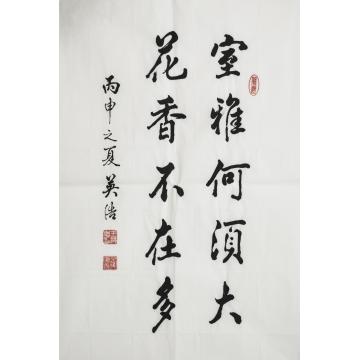 室雅何須大
花香不在多
丙申之夏英浩